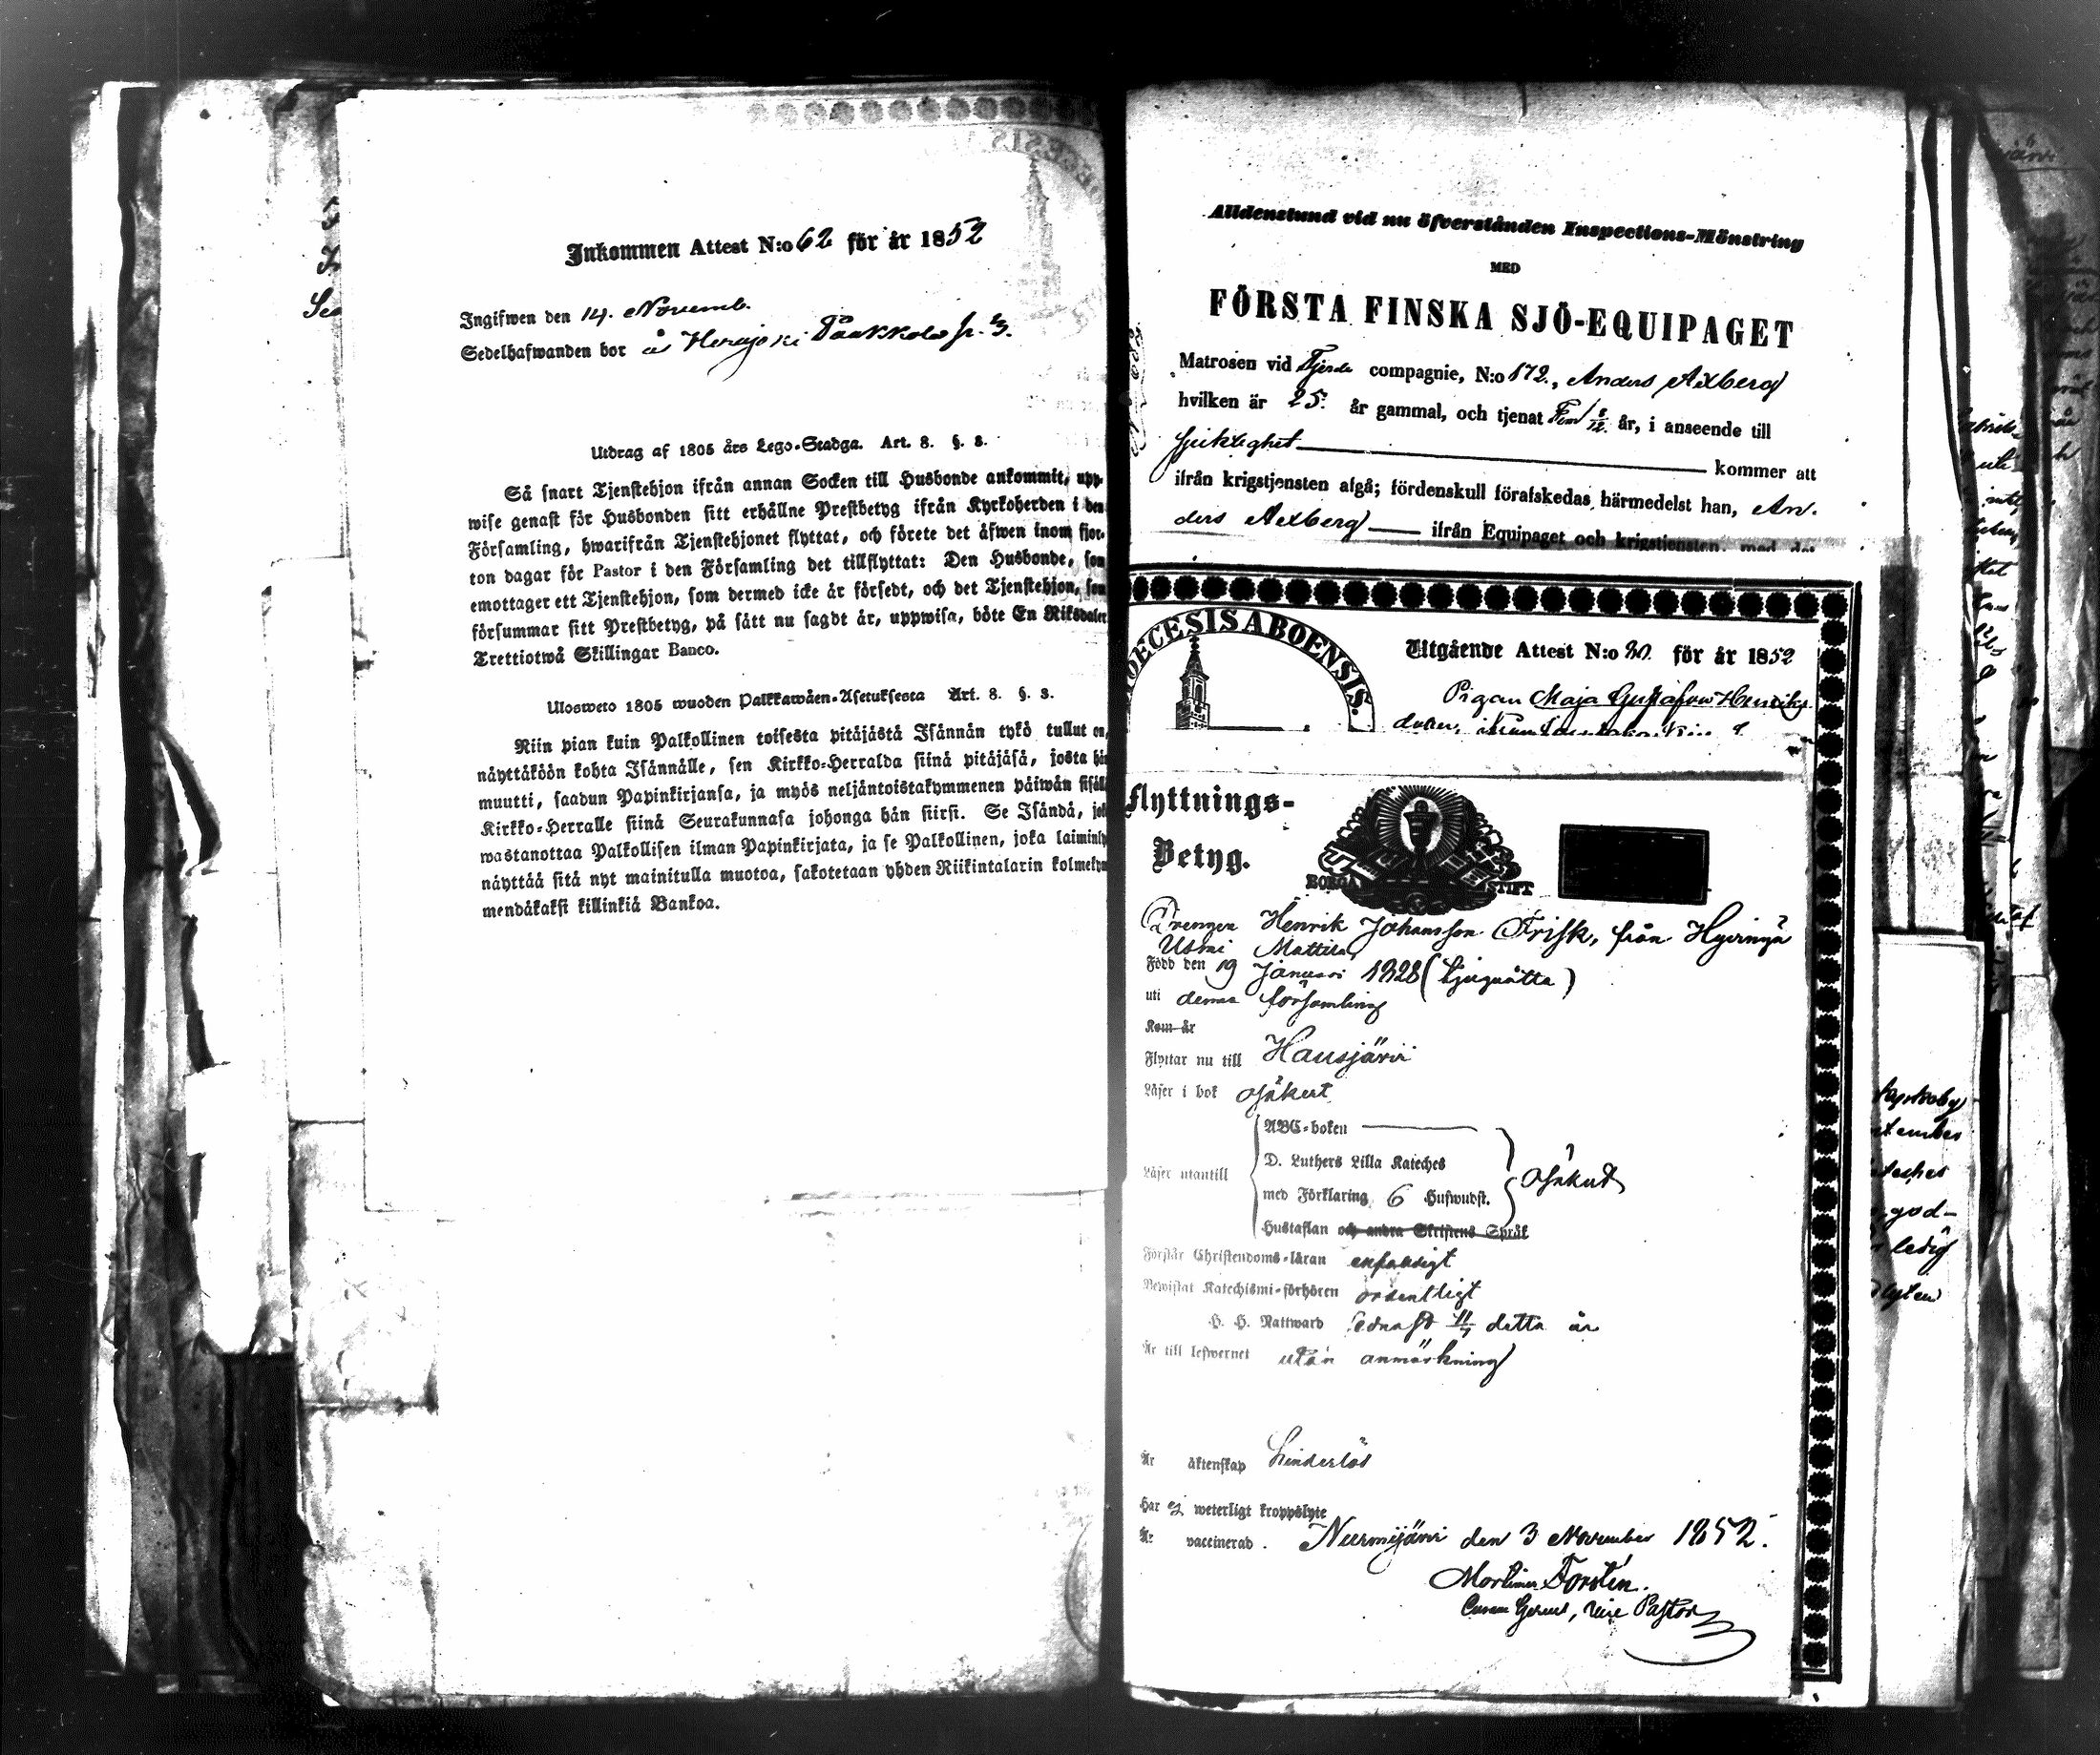 Inkommen Attest N:o 62 för år 1852
Ingifwen den 14. Novemb.
Sedelhafwanden bor å Herajoki
Utdrag af 1805 års Lego-Stadga. Art. 8. §. 8.
Så snart Tjenstehjon ifrån annan Socken till Husbonde ankommit, upp-
wise genast för Husbonden sitt erhållne Prestbetyg ifrån Kyrkoherden i den
Församling, hwarifrån Tjenstehjonet flyttat, och förete det äfwen inom fjor-
ton dagar för Pastor i den Församling det tillflyttat: Den Husbonde, som
emottager ett Tjenstehjon, som dermed icke är försedt, och det Tjenstehjon, som
försummar sitt Prestbetyg, på sätt nu sagdt är, uppwisa, böte En Riksdaler
Trettiotwå Skillingar Banco.
Ulosweto 1805 wuoden Palkkawäen-Asetuksesta Art. 8. §. 8.
Niin pian kuin Palkollinen toisesta pitäjästä Isännän tykö tullut on,
näyttäköön kohta Isännälle, sen Kirkko-Herralda siinä pitäjäsä, josta hän
muutti, saadun Papinkirjansa, ja myös neljäntoistakymmenen päiwän sisällä
Kirkko-Herralle siinä Seurakunnasa johonga hän siirsi. Se Isändä, joka
wastanottaa Palkollisen ilman Papinkirjata, ja se Palkollinen, joka laiminlyö
näyttää sitä nyt mainitulla muotoa, sakotetaan yhden Riikintalarin kolmekym-
mendäkaksi killinkiä Bankoa.
Alldenstund vid nu öfverstånden Inspections-Mönstring
MED
FÖRSTA FINSKA SJÖ-EQUIPAGET
Matrosen vid Fjerde compagnie, N:o 172., Anders Axberg
hvilken är 25. år gammal, och tjenat Fem 8/12. år, i anseende till
sjuklighet kommer att
ifrån krigstjensten afgå; fördenskull förafskedas härmedelst han, An-
ders Axberg ifrån Equipaget och krigstjensten, med det
DIOECESIS ABOENSIS.
Utgående Attest N:o 30. för år 1852
Pigan Maja Gustafwa Henriks
dotter, från
Flyttnings-
Betyg.
BORGÅ STIFT
Drengen Henrik Johansson Frisk, från Hyvingä
Usmi Mattila
Född den 19 Januari 1828 (tjuguåtta)
uti denna församling
Kom år
Flyttar nu till Hausjärvi
Läser i bok osäkert
ABC-boken
D. Luthers Lilla Kateches
Läser utantill
med Förklaring 6 Hufwudst.
osäkert
Hustaflan och andra Skriftens Språk
Förstår Christendoms-läran enfaldigt
Bewistat Katechismi-förhören ordentligt
H. H. Nattward sednast 11/7 detta år
Är till lefwernet utan anmärkning
Är äktenskap hinderlös
Har ej weterligt kroppslyte
Är vaccinerad. Nurmijärvi den 3 November 1852.
Mortimer Forstén.
Vice Pastor